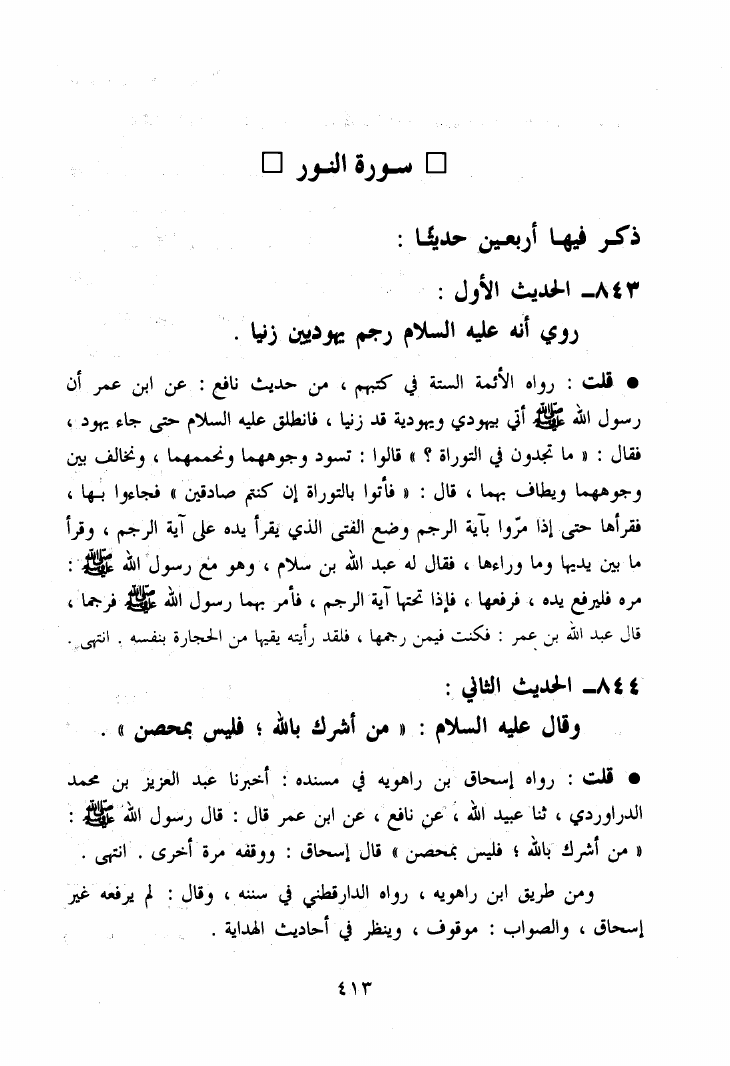 □ سورة النور □
ذكر فيها أربعين حديثًا :
٨٤٣ــ الحديث الأول :
روي أنه عليه السلام رجم يهوديين زنيا .
● قلت : رواه الأئمة الستة في كتبهم ، من حديث نافع : عن ابن عمر أن
رسول الله ﷺ أتي بيهودي ويهودية قد زنيا ، فانطلق عليه السلام حتى جاء يهود ،
فقال : « ما تجدون في التوراة ؟ » قالوا : تسود وجوههما ونحممهما ، ونخالف بين
وجوههما ويطاف بهما ، قال : « فأتوا بالتوراة إن كنتم صادقين » فجاءوا بها ،
فقرأها حتى إذا مرّوا بآية الرجم وضع الفتى الذي يقرأ يده على آية الرجم ، وقرأ
ما بين يديها وما وراءها ، فقال له عبد الله بن سلام ، وهو مع رسول الله ﷺ :
مره فليرفع يده ، فرفعها ، فإذا تحتها آية الرجم ، فأمر بهما رسول الله ﷺ فرجما ،
قال عبد الله بن عمر : فكنت فيمن رجمها ، فلقد رأيته يقيها من الحجارة بنفسه . انتهى .
٨٤٤ــ الحديث الثاني :
وقال عليه السلام : « من أشرك بالله ؛ فليس بمحصن » .
● قلت : رواه إسحاق بن راهويه في مسنده : أخبرنا عبد العزيز بن محمد
الدراوردي ، ثنا عبيد الله ، عن نافع ، عن ابن عمر قال : قال رسول الله ﷺ :
« من أشرك بالله ؛ فليس بمحصن » قال إسحاق : ووقفه مرة أخرى . انتهى .
ومن طريق ابن راهويه ، رواه الدارقطني في سننه ، وقال : لم يرفعه غير
إسحاق ، والصواب : موقوف ، وينظر في أحاديث الهداية .
٤١٣